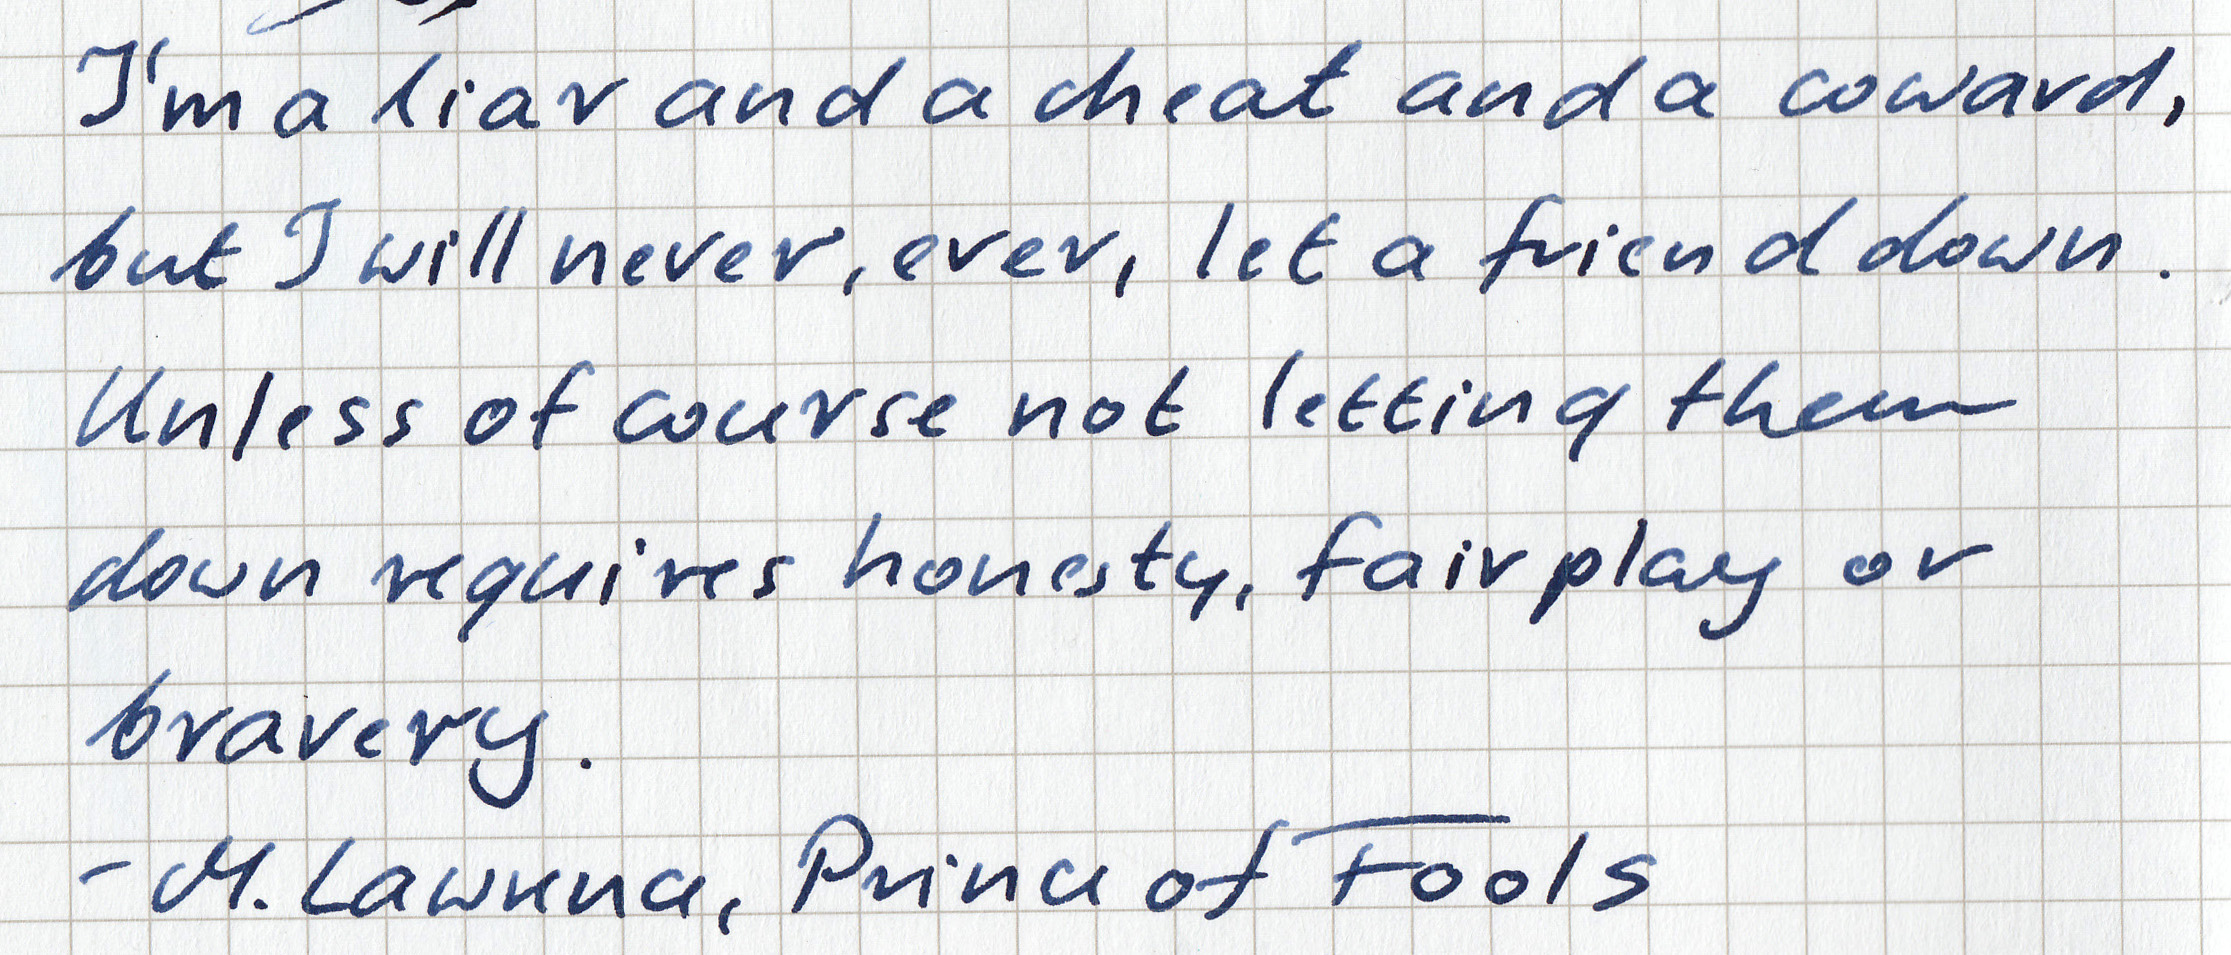 I'm a liar and a cheat and a coward,
but I will never, ever, let a friend down.
Unless of course not letting them
down requires honesty, fair play or
bravery.
- M. Lawrence, Prince of Fools